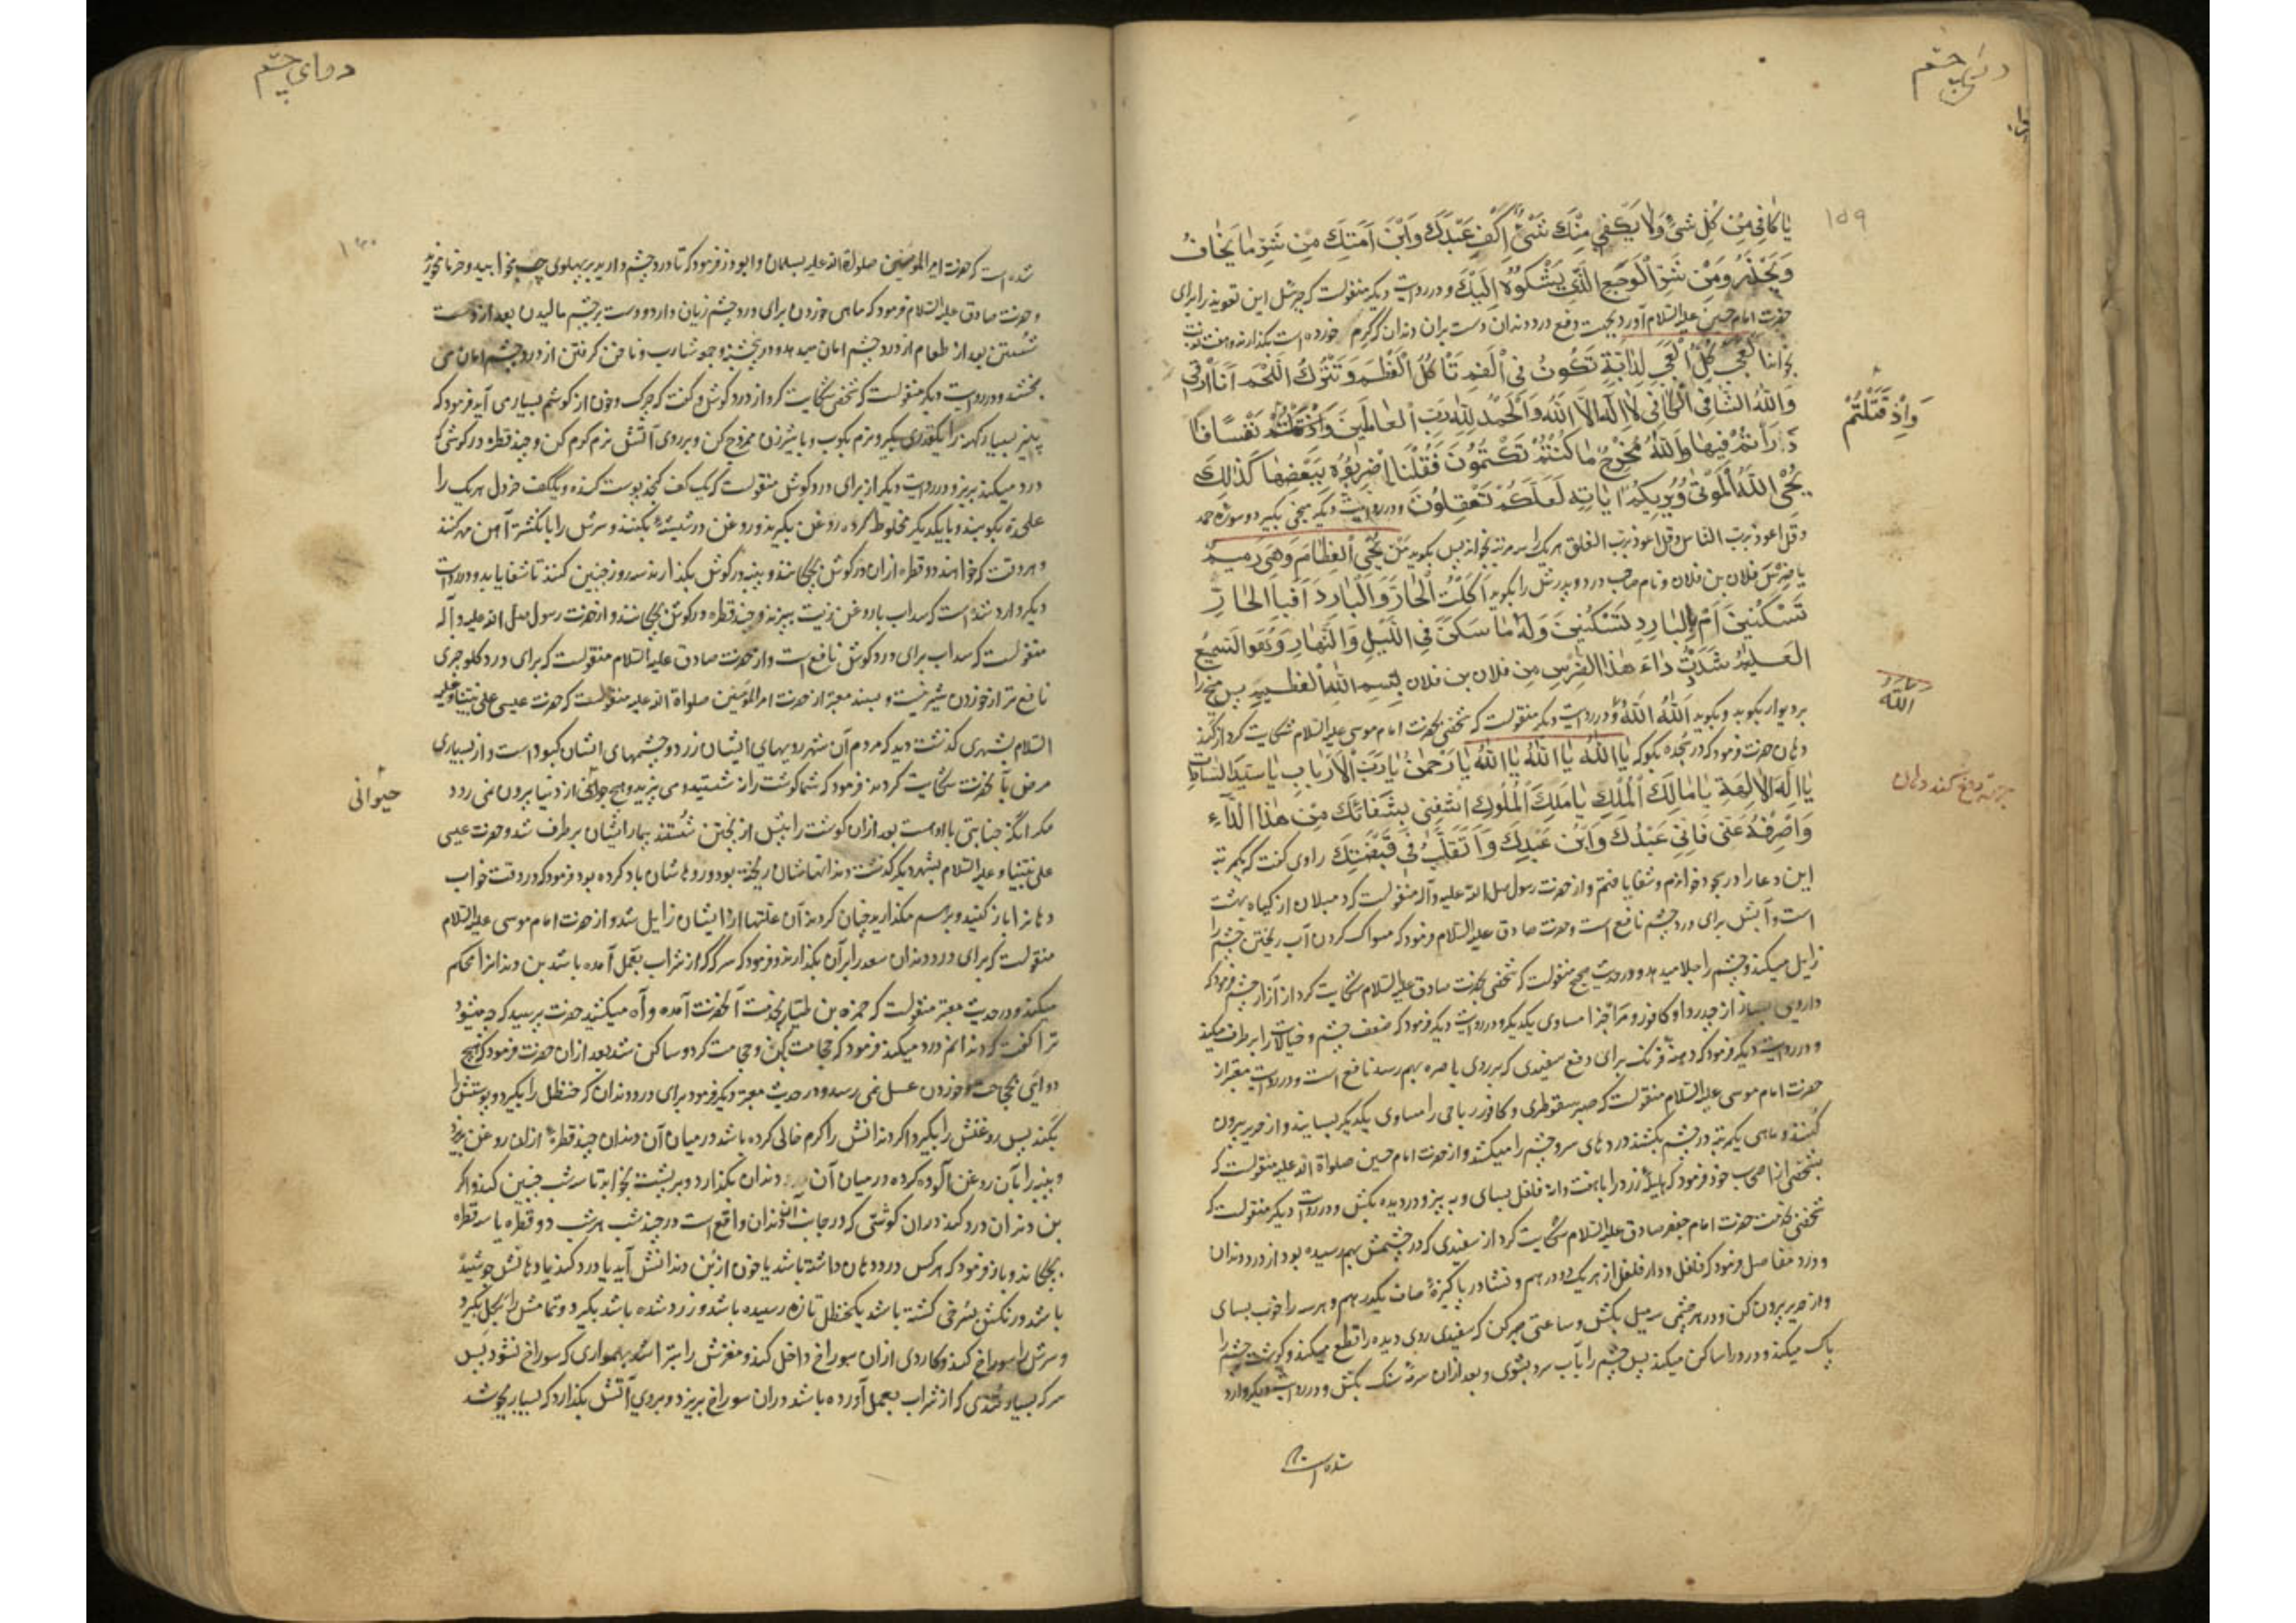 دوای چشم
۱۵۹
یا کافی من کل شئ ولا یکفی منک شئ اکف عبدک وابن امتک من شر ما یخاف
ویحذر ومن شر الوجع الذی یشکوه الیک و در روایت دیگر منقولست که جبرئیل این تعویذ را برای
حضرت امام حسین علیه السلام آورد بجهت دفع درد دندان دست بران دندان که کرم خورده است بکذارند و هفت نوبت
بخوانند العجب کل العجب لدابة تکون فی الفم تاکل العظم وتترک اللحم انا ارقی
والله الشافی الکافی لا اله الا الله والحمد لله رب العالمین واذ قتلتم نفسا فا
وَاِذ قَتَلْتُمْ
دارأتم فیها والله مخرج ما کنتم تکتمون فقلنا اضربوه ببعضها کذلک
یحیی الله الموتی ویریکم ایاته لعلکم تعقلون و در روایت دیگر میخی بگیرد و سوره حمد
و قل اعوذ برب الناس و قل اعوذ برب الفلق هر یک را سه مرتبه بخواند پس بگوید من یحیی العظام وهی رمیم
یا ضرس فلان بن فلان و نام صاحب درد و پدرش را بگوید اکلت الحار والبارد افبالحار
تسکنین ام بالبارد تسکنین وله ما سکن فی اللیل والنهار وهو السمیع
العلیم شددت داء هذا الضرس من فلان بن فلان بسم الله العظیم پس میخ را
بر دیوار بکوبد و بگوید الله الله الله و در روایت دیگر منقولست که شخصی بحضرت امام موسی علیه السلام شکایت کرد از کند
الله
دهان حضرت فرمود که در سجده بکو که یا الله یا الله یا الله یا رحمن یا رب الارباب یا سید السادات
جهة دفع کند دهان
یا اله الالهة یا مالک الملک یا ملک الملوک اشفنی بشفائک من هذا الداء
واصرفه عنی فانی عبدک وابن عبدک واتقلب فی قبضتک راوی کفت که یکمرتبه
این دعا را در سجود خواندم و شفا یافتم و از حضرت رسول صلی الله علیه وآله منقولست که دمبلان از کیاه بهشت
است و آبش برای درد چشم نافع است و حضرت صادق علیه السلام فرمود که مسواک کردن آب ریختن چشم را
زایل میکند و چشم را جلا میدهد و در حدیث صحیح منقولست که شخصی بحضرت صادق علیه السلام شکایت کرد از آزار چشم فرمود که
داروی بساز از صبر و کافور و مر اجزا مساوی یکدیگر و در روایت دیگر فرمود که ضعف چشم و خیالات را برطرف میکند
و در روایت دیگر فرمود که دهنه فرنک برای دفع سفیدی که بر روی باصره بهم رسد نافع است و در روایت معتبر از
حضرت امام موسی علیه السلام منقولست که صبر سقوطری و کافور ریاحی را مساوی یکدیگر بسایند و از حریر بیرون
کنند و ماهی یکمرتبه در چشم بکشند دردهای سر و چشم را میکشد و از حضرت امام حسین صلواة الله علیه منقولست که
بشخصی از اصحاب خود فرمود که هلیله زرد را با هفت دانه فلفل بسای و به بیز و در دیده بکش و در روایت دیگر منقولست که
شخصی بخدمت حضرت امام جعفر صادق علیه السلام شکایت کرد از سفیدی که در چشمش بهم رسیده بود از درد دندان
و درد مفاصل فرمود که فلفل و دار فلفل از هر یک دو درهم و نشادر پاکیزه صاف یکدرهم و هر سه را خوب بسای
و از حریر بیرون کن و در هر چشمی سه میل بکش و ساعتی صبر کن که سفیدی روی دیده را قطع میکند و کوشت چشم را
پاک میکند و درد را ساکن میکند پس چشم را بآب سرد بشوی و بعد از ان سرمه سنک بکش و در روایت دیگر وارد
شده است
دوای چشم
شده است که حضرت امیر المومنین صلواة الله علیه بسلمان و ابوذر فرمود که تا درد چشم دارید بر پهلوی چپ مخوابید و خرما مخورید
و حضرت صادق علیه السلام فرمود که ماهی خوردن برای درد چشم زیان دارد و دست بر چشم مالیدن بعد از دست
شستن بعد از طعام از درد چشم امان میدهد و در پنجشنبه و جمعه شارب و ناخن کرفتن از درد چشم امان می
بخشد و در روایت دیگر منقولست که شخصی شکایت کرد از درد کوش و کفت که چرک و خون از کوشم بسیار می آید فرمود که
پنیر بسیار کهنه را یکقدری بگیر و نرم بکوب و با شیر زن ممزوج کن و بر روی آتش نرم کرم کن و چند قطره در کوشی که
درد میکند بریز و در روایت دیگر از برای درد کوش منقولست که یک کف کنجد پوست کنده و یککف خردل هر یک را
علیحده بکوبند و با یکدیگر مخلوط کرده روغن بگیرند و روغن در شیشه بکنند و سرش را با نکشتر آهن مهر کنند
و هر وقت که خواهند دو قطره ازان در کوش بچکانند و پنبه در کوش بکذارند سه روز چنین کنند تا شفا یابد و در روایت
دیگر وارد شده است که سداب با روغن زیت بپزند و چند قطره در کوش بچکانند و از حضرت رسول صلی الله علیه وآله
منقولست که سداب برای درد کوش نافع است و از حضرت صادق علیه السلام منقولست که برای درد کلو چیزی
نافع تر از خوردن شیر نیست و بسند معتبر از حضرت امیر المومنین صلواة الله علیه منقولست که حضرت عیسی علی نبینا و علیه
السلام بشهری کذشت دید که مردم آن شهر رویهای ایشان زرد و چشمهای ایشان کبود است و از بسیاری
مرض بآنحضرت شکایت کردند فرمود که شما کوشت را نشسته می پزید و هیچ حیوانی از دنیا بیرون نمی رود
حیوانی
مکر آنکه جنابتی با او هست بعد از ان کوشت را پیش از پختن شستند بیماریشان برطرف شد و حضرت عیسی
علی نبینا و علیه السلام بشهر دیگر کذشت دندانهاشان ریخته بود و روهاشان باد کرده بود فرمود که در وقت خواب
دهانرا باز کنید و بر هم مکذارید چنان کردند آن علتها از ایشان زایل شد و از حضرت امام موسی علیه السلام
منقولست که برای درد دندان سعد را بر آن بکذارند و فرمود که سرکه که از شراب بعمل آمده باشد بن دندانرا محکم
میکند و در حدیث معتبر منقولست که حمزه بن طیار بخدمت آنحضرت آمده و آه میکشید حضرت پرسید که چه میشود
ترا کفت که دندانم درد میکند فرمود که حجامت بکن و حجامت کرد و ساکن شد بعد ازان حضرت فرمود که هیچ
دوائی بحجامت و خوردن عسل نمی رسد و در حدیث معتبر دیگر فرمود برای درد دندان که حنظل را بکیرد و پوستش را
بکند پس روغنش را بکیرد اکر دندانش را کرم خالی کرده باشد در میان آن دندان چند قطره ازان روغن بریزد
و پنبه را بآن روغن آلوده کرده در میان آن دندان بکذارد و بر پشت بخوابد تا سه شب چنین کند و اکر
بن دندان درد کند دران کوشی که در جانب آن دندان واقع است در چند شب هر شب دو قطره یا سه قطره
بچکاند و باز فرمود که هر کس درد دهان داشته باشد یا خون از بن دندانش آید یا درد کند یا دهانش جوشیده
باشد و رنکش بسرخی کشته باشد یک حنظل تازه رسیده باشد و زرد شده باشد بکیرد و تمامش را بکل بکیرد
و سرش را سوراخ کند و کاردی ازان سوراخ داخل کند و مغزش را بتراشد بهمواری که سوراخ نشود پس
سرکه بسیار تندی که از شراب بعمل آورده باشد دران سوراخ بریزد و بر روی آتش بکذارد که بسیار بجوشد